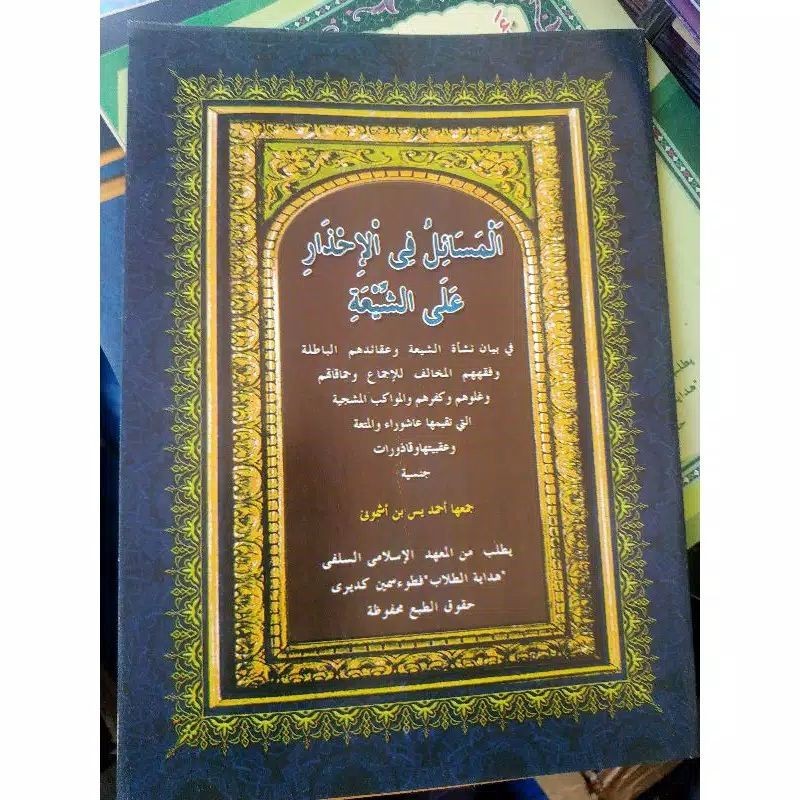 اَلْمَسَائِلُ فِى اْلإِحْذَارِ
عَلَى الشِّيْعَةِ
في بيان نشأة الشيعة وعقائدهم الباطلة
وفقههم المخالف للإجماع وحماقاتهم
وغلوهم وكفرهم والمواكب المشجية
التي تقيمها عاشوراء والمتعة
وعقيبتهاوقاذورات
جنسية
جمعها أحمد يس بن أشموني
يطلب من المعهد الإسلامى السلفى
"هداية الطلاب" فطوء سمين كديرى
حقوق الطبع محفوظة
يطلب
"هداية